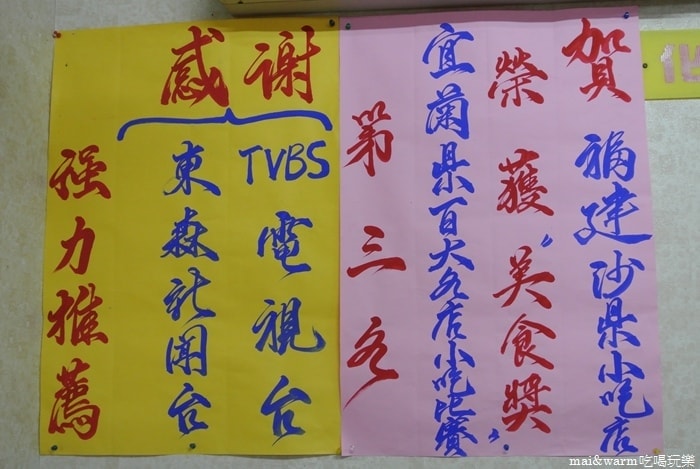 賀 福建沙県小吃店
榮獲〝美食獎〞
宜蘭県百大名店小吃比賽
第三名
感謝
TVBS電視台
東森新聞台
强力推薦
mai&warm吃喝玩樂